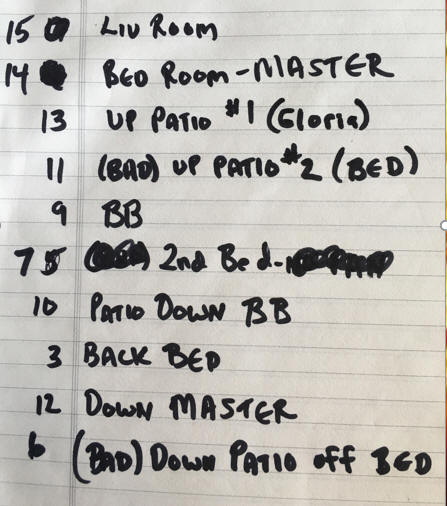 15 Liv Room
14 BED ROOM-MASTER
13 UP PATIO #1 (Gloria)
11 (BAD) UP PATIO #2 (BED)
9 BB
7 2nd Bed-
10 PATIO DOWN BB
3 BACK BED
12 DOWN MASTER
6 (BAD) DOWN PATIO off BED